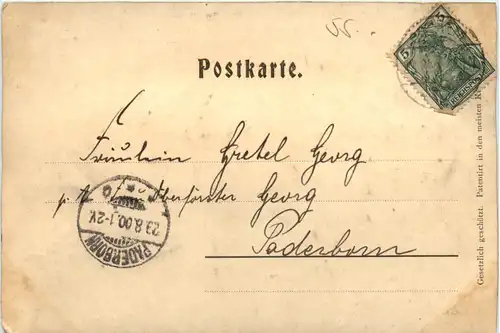 55.
Postkarte.
Fräulein Gretel Georg
Oberförster Georg
Paderborn
PADERBORN
23.8.00.1-2N.
5
Gesetzlich geschützt. Patentirt in den meisten